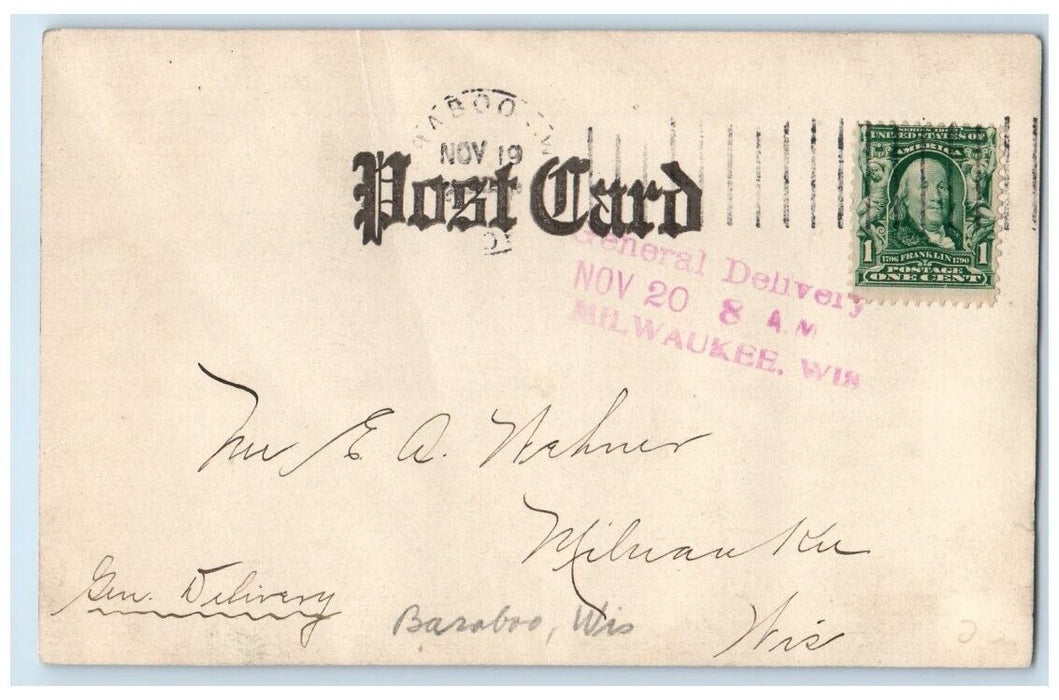 RABOO
NOV 19
Post Card
SERIES 1902
UNITED STATES OF
AMERICA
1 1706 FRANKLIN 1790 1
POSTAGE
ONE CENT
General Delivery
NOV 20 8 A.M
MILWAUKEE, WIS
E. A. Wahner
Milwaukee
Gen. Delivery
Baraboo, Wis
Wis